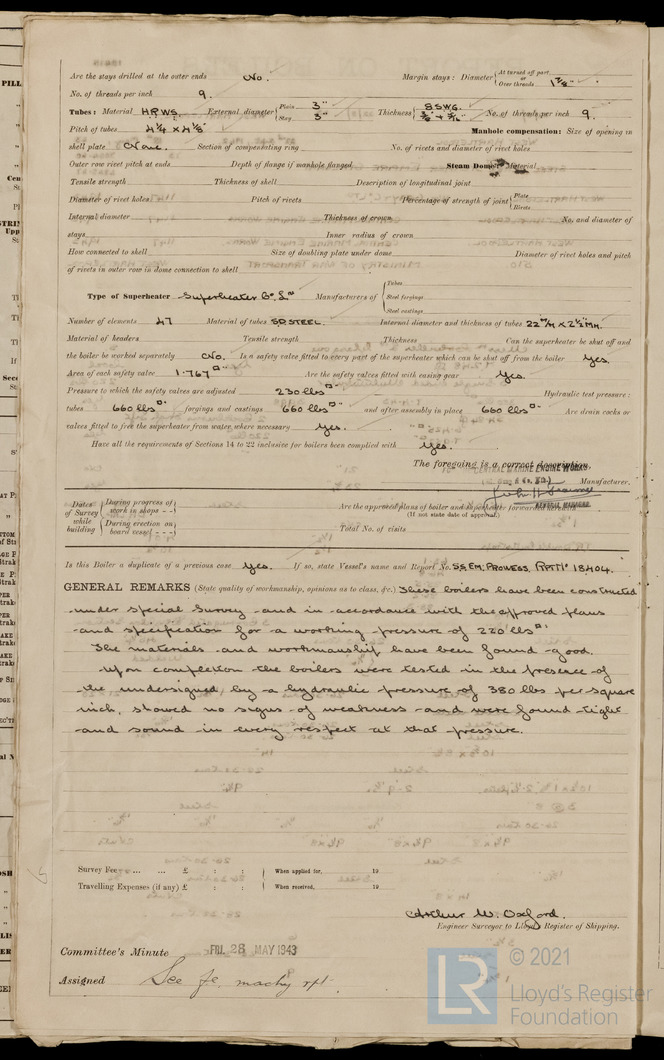 Are the stays drilled at the outer ends No. Margin stays: Diameter { At turned off part, or Over threads 1 7/8"
No. of threads per inch 9.
Tubes: Material H.R.W.S. External diameter { Plain 3" Stay 3" Thickness { 8 S.W.G. No. of threads per inch 9.
Pitch of tubes 4 1/4 x 4 1/8" Manhole compensation: Size of opening in
shell plate None. Section of compensating ring No. of rivets and diameter of rivet holes
Outer row rivet pitch at ends Depth of flange if manhole flanged Steam Dome: Material
Tensile strength Thickness of shell Description of longitudinal joint
Diameter of rivet holes Pitch of rivets Percentage of strength of joint { Plate Rivets
Internal diameter Thickness of crown No. and diameter of
stays Inner radius of crown
How connected to shell Size of doubling plate under dome Diameter of rivet holes and pitch
of rivets in outer row in dome connection to shell
Type of Superheater Superheater Co. Ld. Manufacturers of { Tubes Steel forgings Steel castings
Number of elements 47 Material of tubes S.D. STEEL. Internal diameter and thickness of tubes 22 M/M x 2 1/2 MM.
Material of headers Tensile strength Thickness Can the superheater be shut off and
the boiler be worked separately No. Is a safety valve fitted to every part of the superheater which can be shut off from the boiler Yes.
Area of each safety valve 1.767 □" Are the safety valves fitted with easing gear Yes.
Pressure to which the safety valves are adjusted 230 lbs □". Hydraulic test pressure:
tubes 660 lbs □". forgings and castings 660 lbs □" and after assembly in place 660 lbs □" Are drain cocks or
valves fitted to free the superheater from water where necessary Yes.
Have all the requirements of Sections 14 to 22 inclusive for boilers been complied with Yes.
The foregoing is a correct description,
CENTRAL MARINE ENGINE WORKS
Manufacturer.
GENERAL MANAGER.
Dates of Survey while building { During progress of work in shops - - During erection on board vessel - - - Are the approved plans of boiler and superheater forwarded herewith
(If not state date of approval.)
Total No. of visits
Is this Boiler a duplicate of a previous case Yes. If so, state Vessel's name and Report No. S.S. EM. PROWESS, RPT. No 18404.
GENERAL REMARKS (State quality of workmanship, opinions as to class, &c.) These boilers have been constructed
under special Survey and in accordance with the approved plans
and specification for a working pressure of 220 lbs □".
The materials and workmanship have been found good.
Upon completion the boilers were tested in the presence of
the undersigned by a hydraulic pressure of 380 lbs per square
inch, showed no signs of weakness and were found tight
and sound in every respect at that pressure.
Survey Fee ... ... £ : : When applied for, 19
Travelling Expenses (if any) £ : : When received, 19
Arthur W. Oxford.
Engineer Surveyor to Lloyd's Register of Shipping.
Committee's Minute FRI. 28 MAY 1943
Assigned See Je. machy rpt.
LR © 2021
Lloyd's Register
Foundation